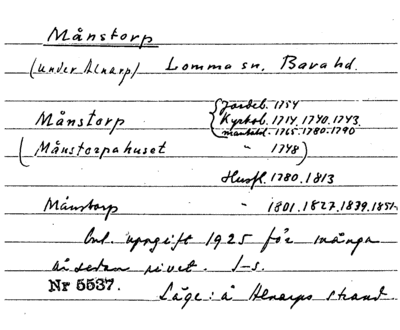 Månstorp
(under Alnarp) Lomma sn. Bara hd.
Jordeb. 1754
Månstorp Kyrkob. 1714. 1740. 1743.
mantalsl. 1765. 1780. 1790
(Månstorpahuset " 1748)
Husfl. 1780. 1813
Månstorp " 1801. 1827. 1839. 1851.
Enl. uppgift 1925 för många
år sedan rivet. I-s.
Nr 5537.
Läge: å Alnarps strand.